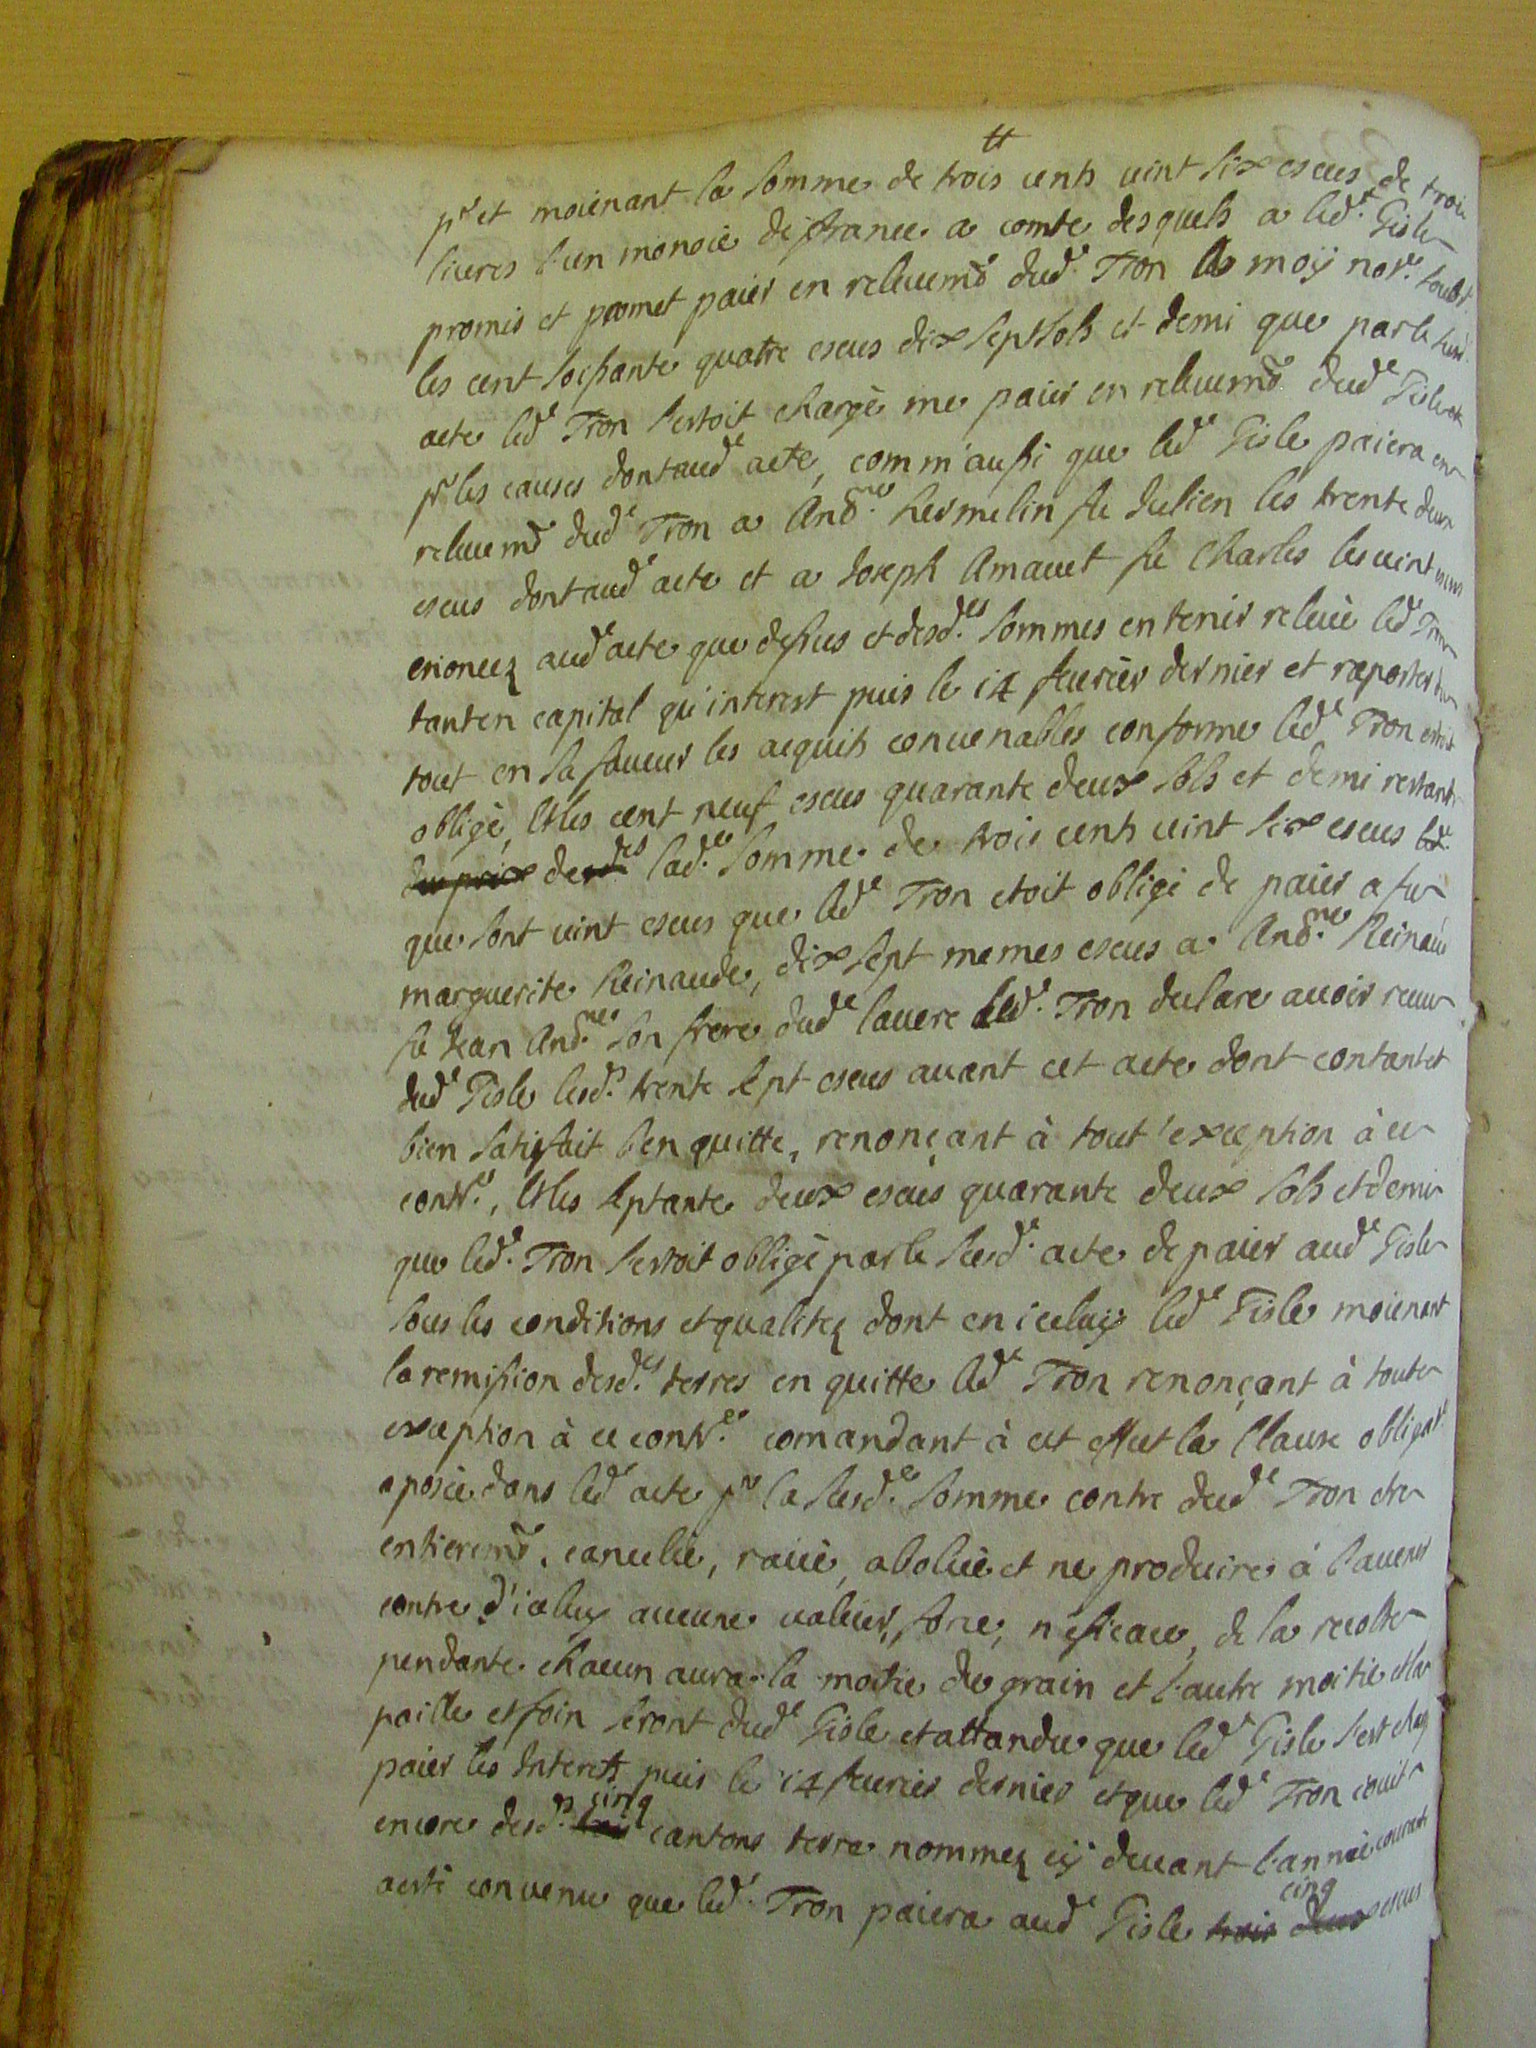 pr et moienant la somme de trois cents vint six escus de trois
livres l'un monoie de france a comte desquels a led.t Gisle
promis et promet paier en relevemt dud.e Tron a moÿ not.e soub.t
les cent soissante quatre escus dix sept sols et demi que par le susd.
acte led.e Tron s'estoit chargè me paier en relevemt dud.e Gisle et
pr les causes dont aud.e acte, comm'aussi que led.e Gisle paiera en
relevemt dud.e Tron a And.ne hermelin fu Julien les trente deux
escus dont aud.e acte et a Joseph Amavet fu Charles les vint escus
enoncez aud.e acte que dessus et desd.es sommes en tenir relevè led.e Tron
tant en capital qu'interest puis le 14 fevrier dernier et raporter du
tout en sa faveur les acquits convenables conforme led.e Tron estoit
obligè, et les cent neuf escus quarante deux sols et demi restants
du prix desd.es lad.e somme de trois cents vint six escus
que sont vint escus que led.e Tron etoit obligè de paier a fu
marguerite Reinaude, dix sept memes escus a And.ne Reinaud
fu Jean And.ne son frere dud.e lavere led.e Tron declare avoir receu
dud.e Gisle lesd.s trente sept escus avant cet acte dont contant et
bien satisfait l'en quitte, renonçant à tout'exception à ce
contr.e, et les septante deux escus quarante deux sols et demi
que led.e Tron s'estoit obligè par le susd.e acte de paier aud.e Gisle
sous les conditions et qualitez dont en iceluÿ led.e Gisle moienant
la remission desd.es terres en quitte led.e Tron renonçant à toute
exception à ce contr.e comandant à cet effect la Clause obligat.e
aposèe dans led.e acte pr la susd.e somme contre dud.e Tron etre
entieremt cancelèe, raièe, abolie et ne produire à l'avenir
contre d'iceluy aucune valeur, force, n'eficace, de la recolte
pendante chacun aura la moitie du grain et l'autre moitie et la
paille et foin seront dud.e Gisle et attandu que led.e Gisle s'est charg
paier les Interets puis le 14 fevrier dernier et que led.e Tron jouit
encore desd.s cinq cantons terre nommez cÿ devant l'annèe courante
a estè convenu que led.e Tron paiera aud.e Gisle trois deux cinq escus